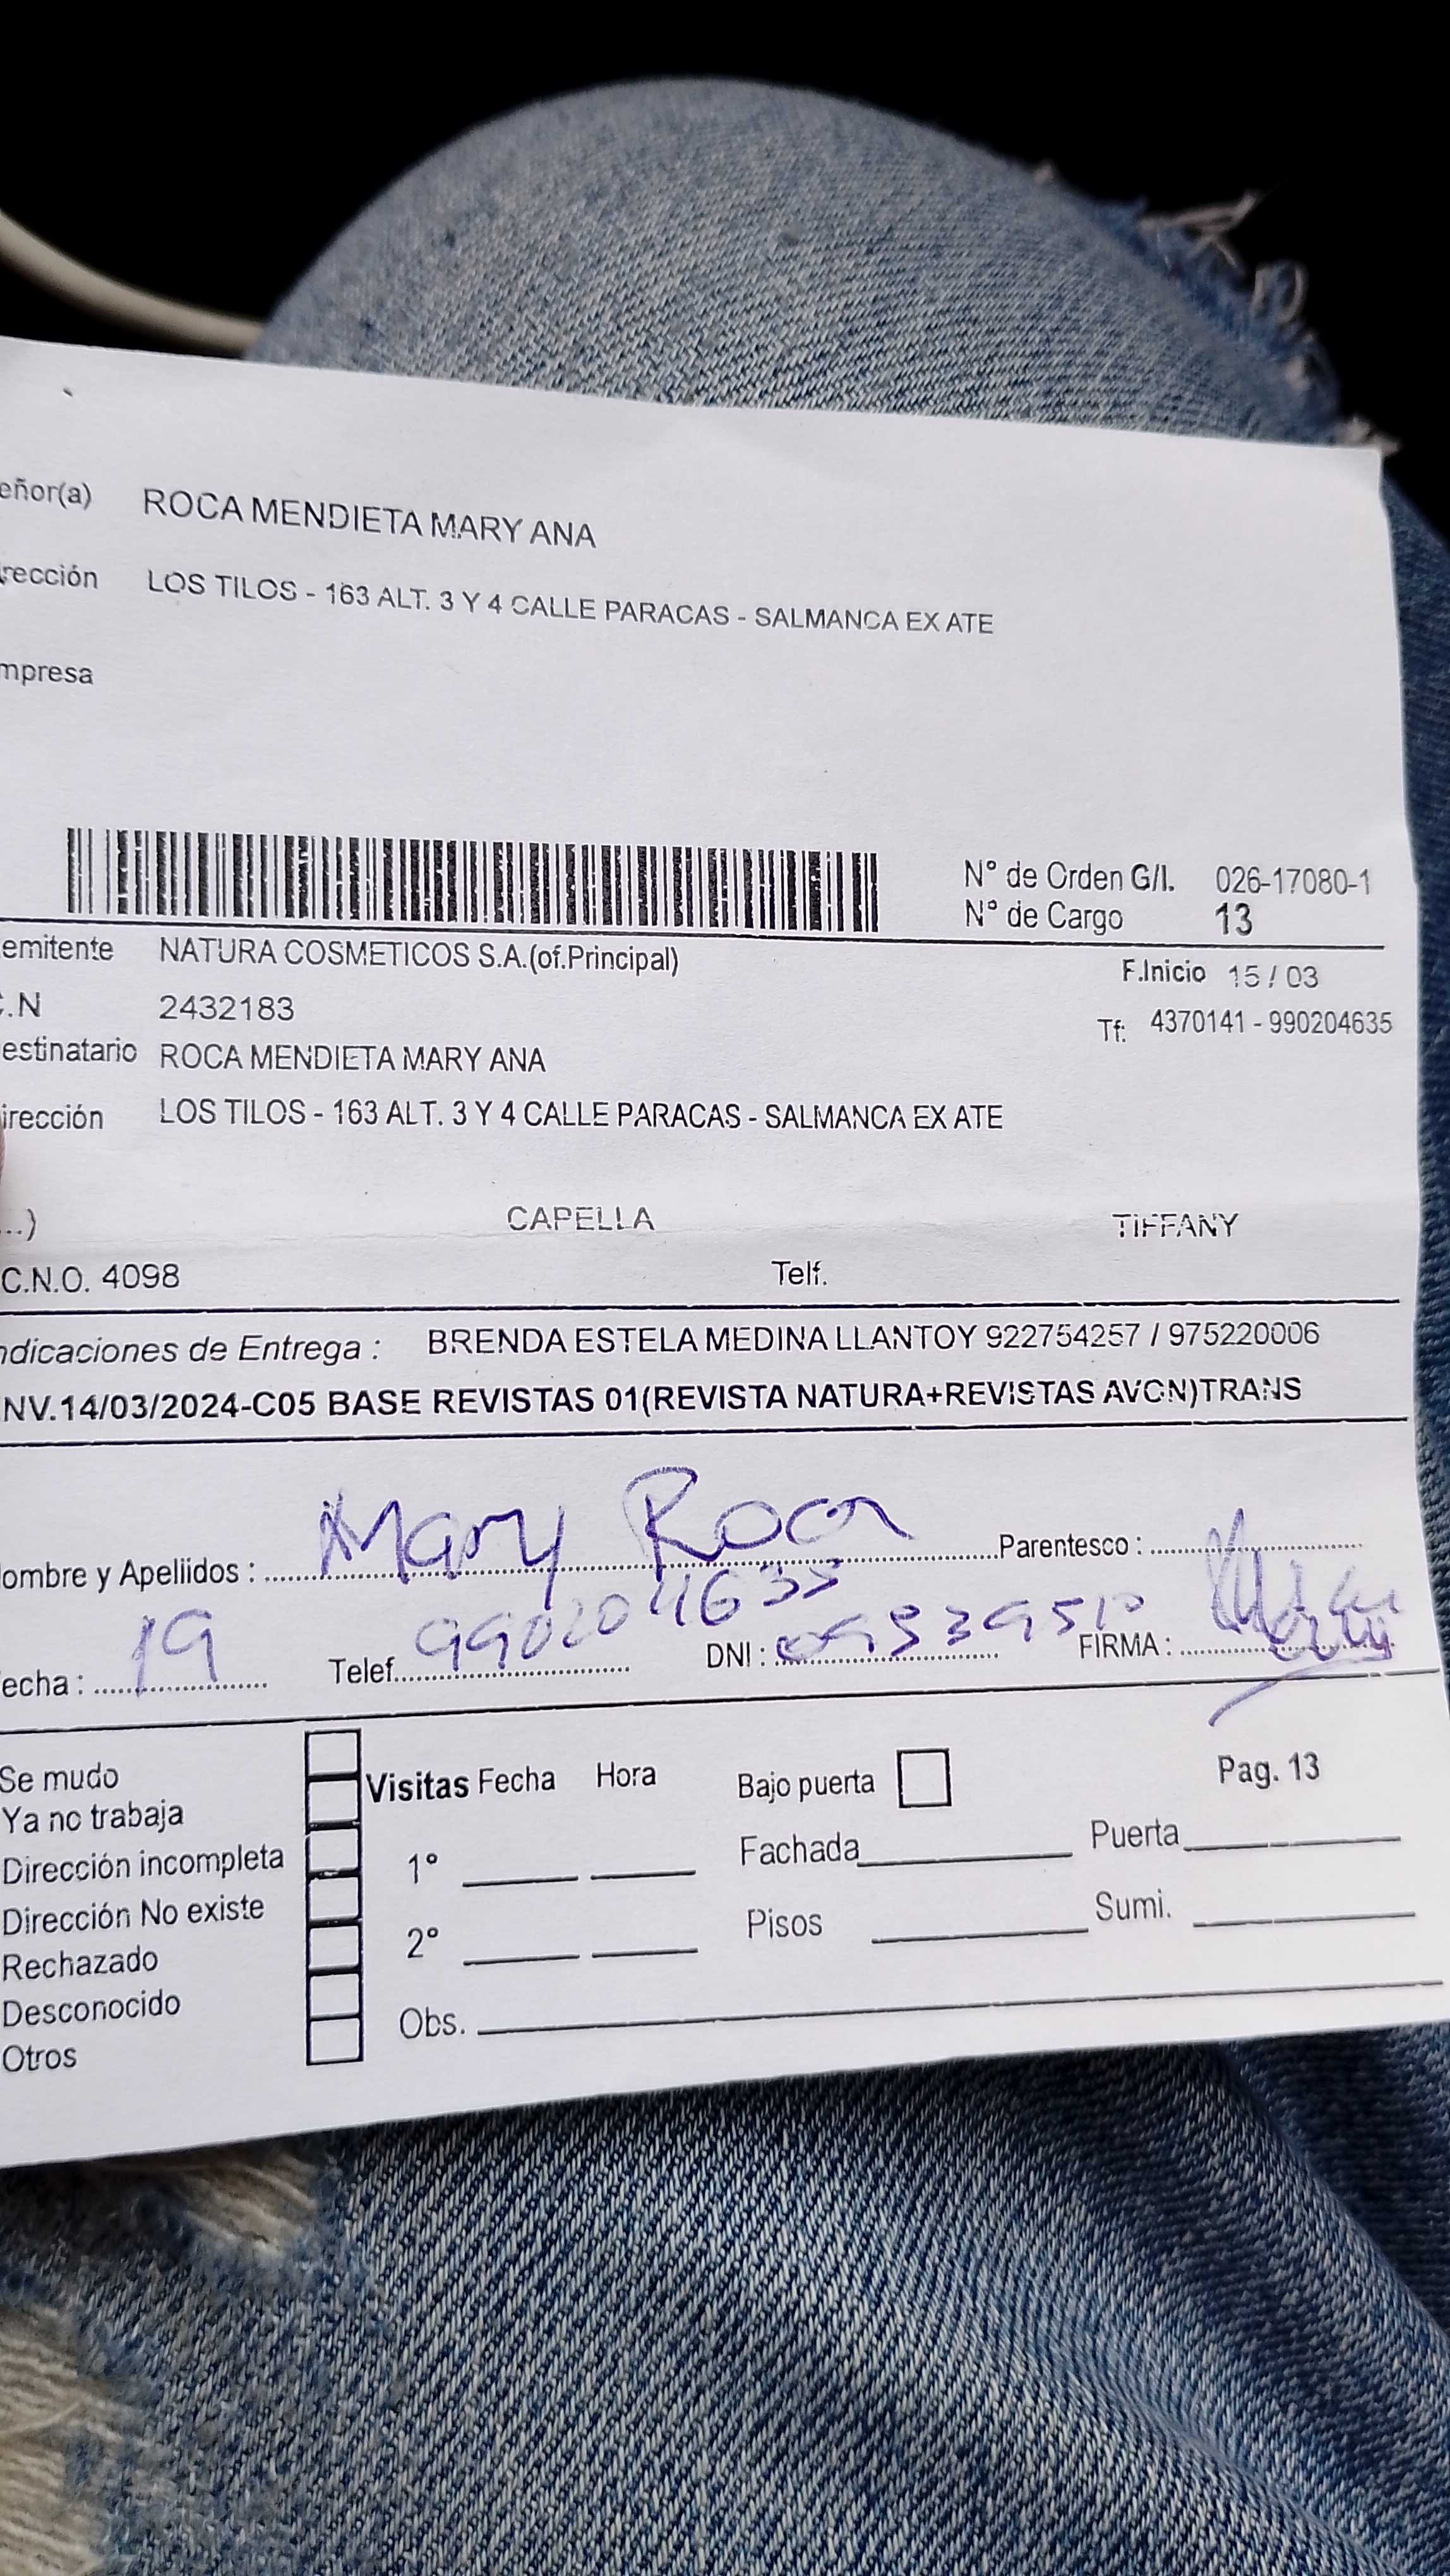 eñor(a) ROCA MENDIETA MARY ANA
rección LOS TILOS - 163 ALT. 3 Y 4 CALLE PARACAS - SALMANCA EX ATE
mpresa
N° de Orden G/I. 026-17080-1
N° de Cargo 13
emitente NATURA COSMETICOS S.A.(of.Principal)
F.Inicio 15 / 03
C.N 2432183
Tf: 4370141 - 990204635
estinatario ROCA MENDIETA MARY ANA
irección LOS TILOS - 163 ALT. 3 Y 4 CALLE PARACAS - SALMANCA EX ATE
...) CAPELLA TIFFANY
C.N.O. 4098 Telf.
ndicaciones de Entrega : BRENDA ESTELA MEDINA LLANTOY 922754257 / 975220006
NV.14/03/2024-C05 BASE REVISTAS 01(REVISTA NATURA+REVISTAS AVON)TRANS
ombre y Apellidos : Mary Roca Parentesco :
echa : 19 Telef. 990204635 DNI : FIRMA :
Se mudo
Ya no trabaja
Dirección incompleta
Dirección No existe
Rechazado
Desconocido
Otros
Visitas Fecha Hora Bajo puerta Pag. 13
1° Fachada Puerta
2° Pisos Sumi.
Obs.